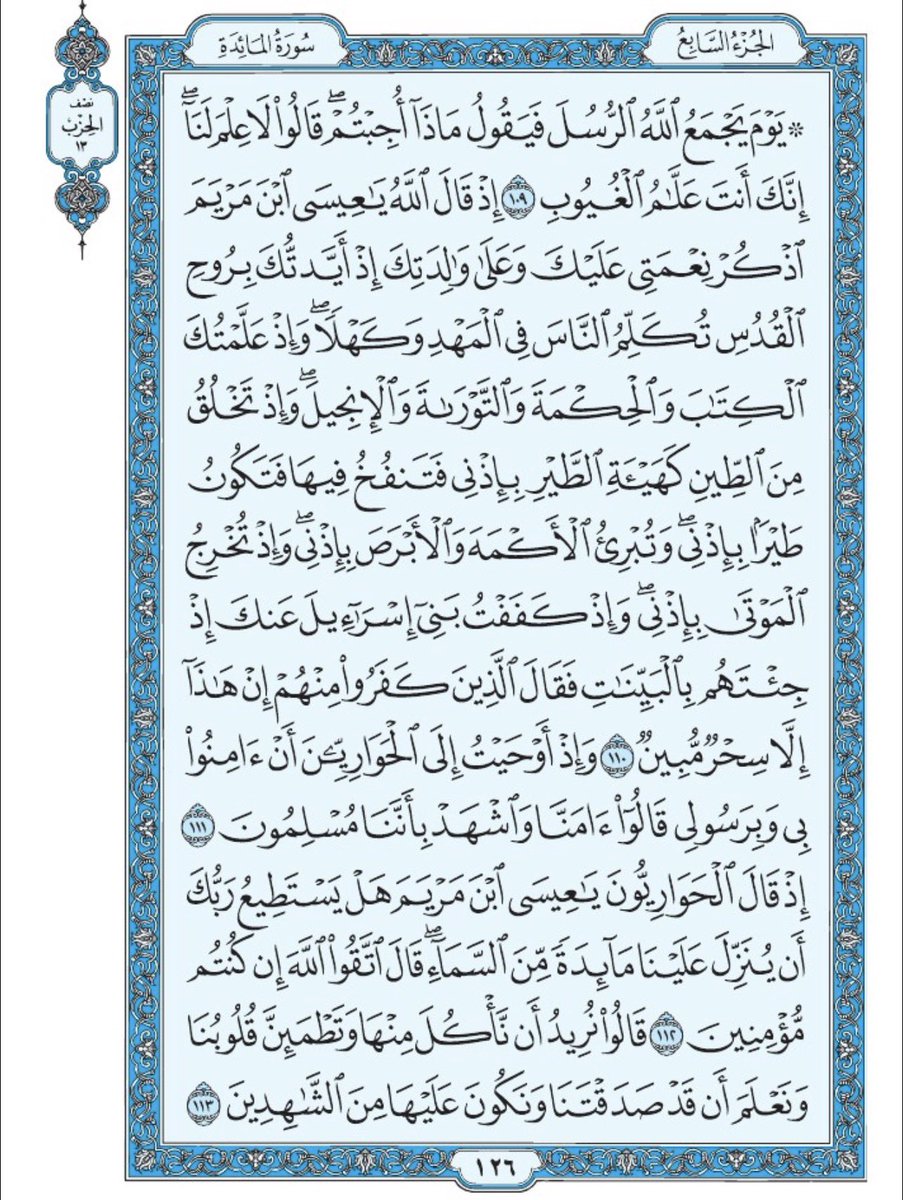 الجُزْءُ السَّابِعُ
سُورَةُ المَائِدَةِ
نصف
الحِزْب
١٣
۞ يَوْمَ يَجْمَعُ ٱللَّهُ ٱلرُّسُلَ فَيَقُولُ مَاذَآ أُجِبْتُمْۖ قَالُوا۟ لَا عِلْمَ لَنَآۖ
إِنَّكَ أَنتَ عَلَّٰمُ ٱلْغُيُوبِ ١٠٩ إِذْ قَالَ ٱللَّهُ يَٰعِيسَى ٱبْنَ مَرْيَمَ
ٱذْكُرْ نِعْمَتِى عَلَيْكَ وَعَلَىٰ وَٰلِدَتِكَ إِذْ أَيَّدتُّكَ بِرُوحِ
ٱلْقُدُسِ تُكَلِّمُ ٱلنَّاسَ فِى ٱلْمَهْدِ وَكَهْلًاۖ وَإِذْ عَلَّمْتُكَ
ٱلْكِتَٰبَ وَٱلْحِكْمَةَ وَٱلتَّوْرَىٰةَ وَٱلْإِنجِيلَۖ وَإِذْ تَخْلُقُ
مِنَ ٱلطِّينِ كَهَيْـَٔةِ ٱلطَّيْرِ بِإِذْنِى فَتَنفُخُ فِيهَا فَتَكُونُ
طَيْرًۢا بِإِذْنِىۖ وَتُبْرِئُ ٱلْأَكْمَهَ وَٱلْأَبْرَصَ بِإِذْنِىۖ وَإِذْ تُخْرِجُ
ٱلْمَوْتَىٰ بِإِذْنِىۖ وَإِذْ كَفَفْتُ بَنِىٓ إِسْرَٰٓءِيلَ عَنكَ إِذْ
جِئْتَهُم بِٱلْبَيِّنَٰتِ فَقَالَ ٱلَّذِينَ كَفَرُوا۟ مِنْهُمْ إِنْ هَٰذَآ
إِلَّا سِحْرٌ مُّبِينٌ ١١٠ وَإِذْ أَوْحَيْتُ إِلَى ٱلْحَوَارِيِّـۧنَ أَنْ ءَامِنُوا۟
بِى وَبِرَسُولِى قَالُوٓا۟ ءَامَنَّا وَٱشْهَدْ بِأَنَّنَا مُسْلِمُونَ ١١١
إِذْ قَالَ ٱلْحَوَارِيُّونَ يَٰعِيسَى ٱبْنَ مَرْيَمَ هَلْ يَسْتَطِيعُ رَبُّكَ
أَن يُنَزِّلَ عَلَيْنَا مَآئِدَةً مِّنَ ٱلسَّمَآءِۖ قَالَ ٱتَّقُوا۟ ٱللَّهَ إِن كُنتُم
مُّؤْمِنِينَ ١١٢ قَالُوا۟ نُرِيدُ أَن نَّأْكُلَ مِنْهَا وَتَطْمَئِنَّ قُلُوبُنَا
وَنَعْلَمَ أَن قَدْ صَدَقْتَنَا وَنَكُونَ عَلَيْهَا مِنَ ٱلشَّٰهِدِينَ ١١٣
١٢٦